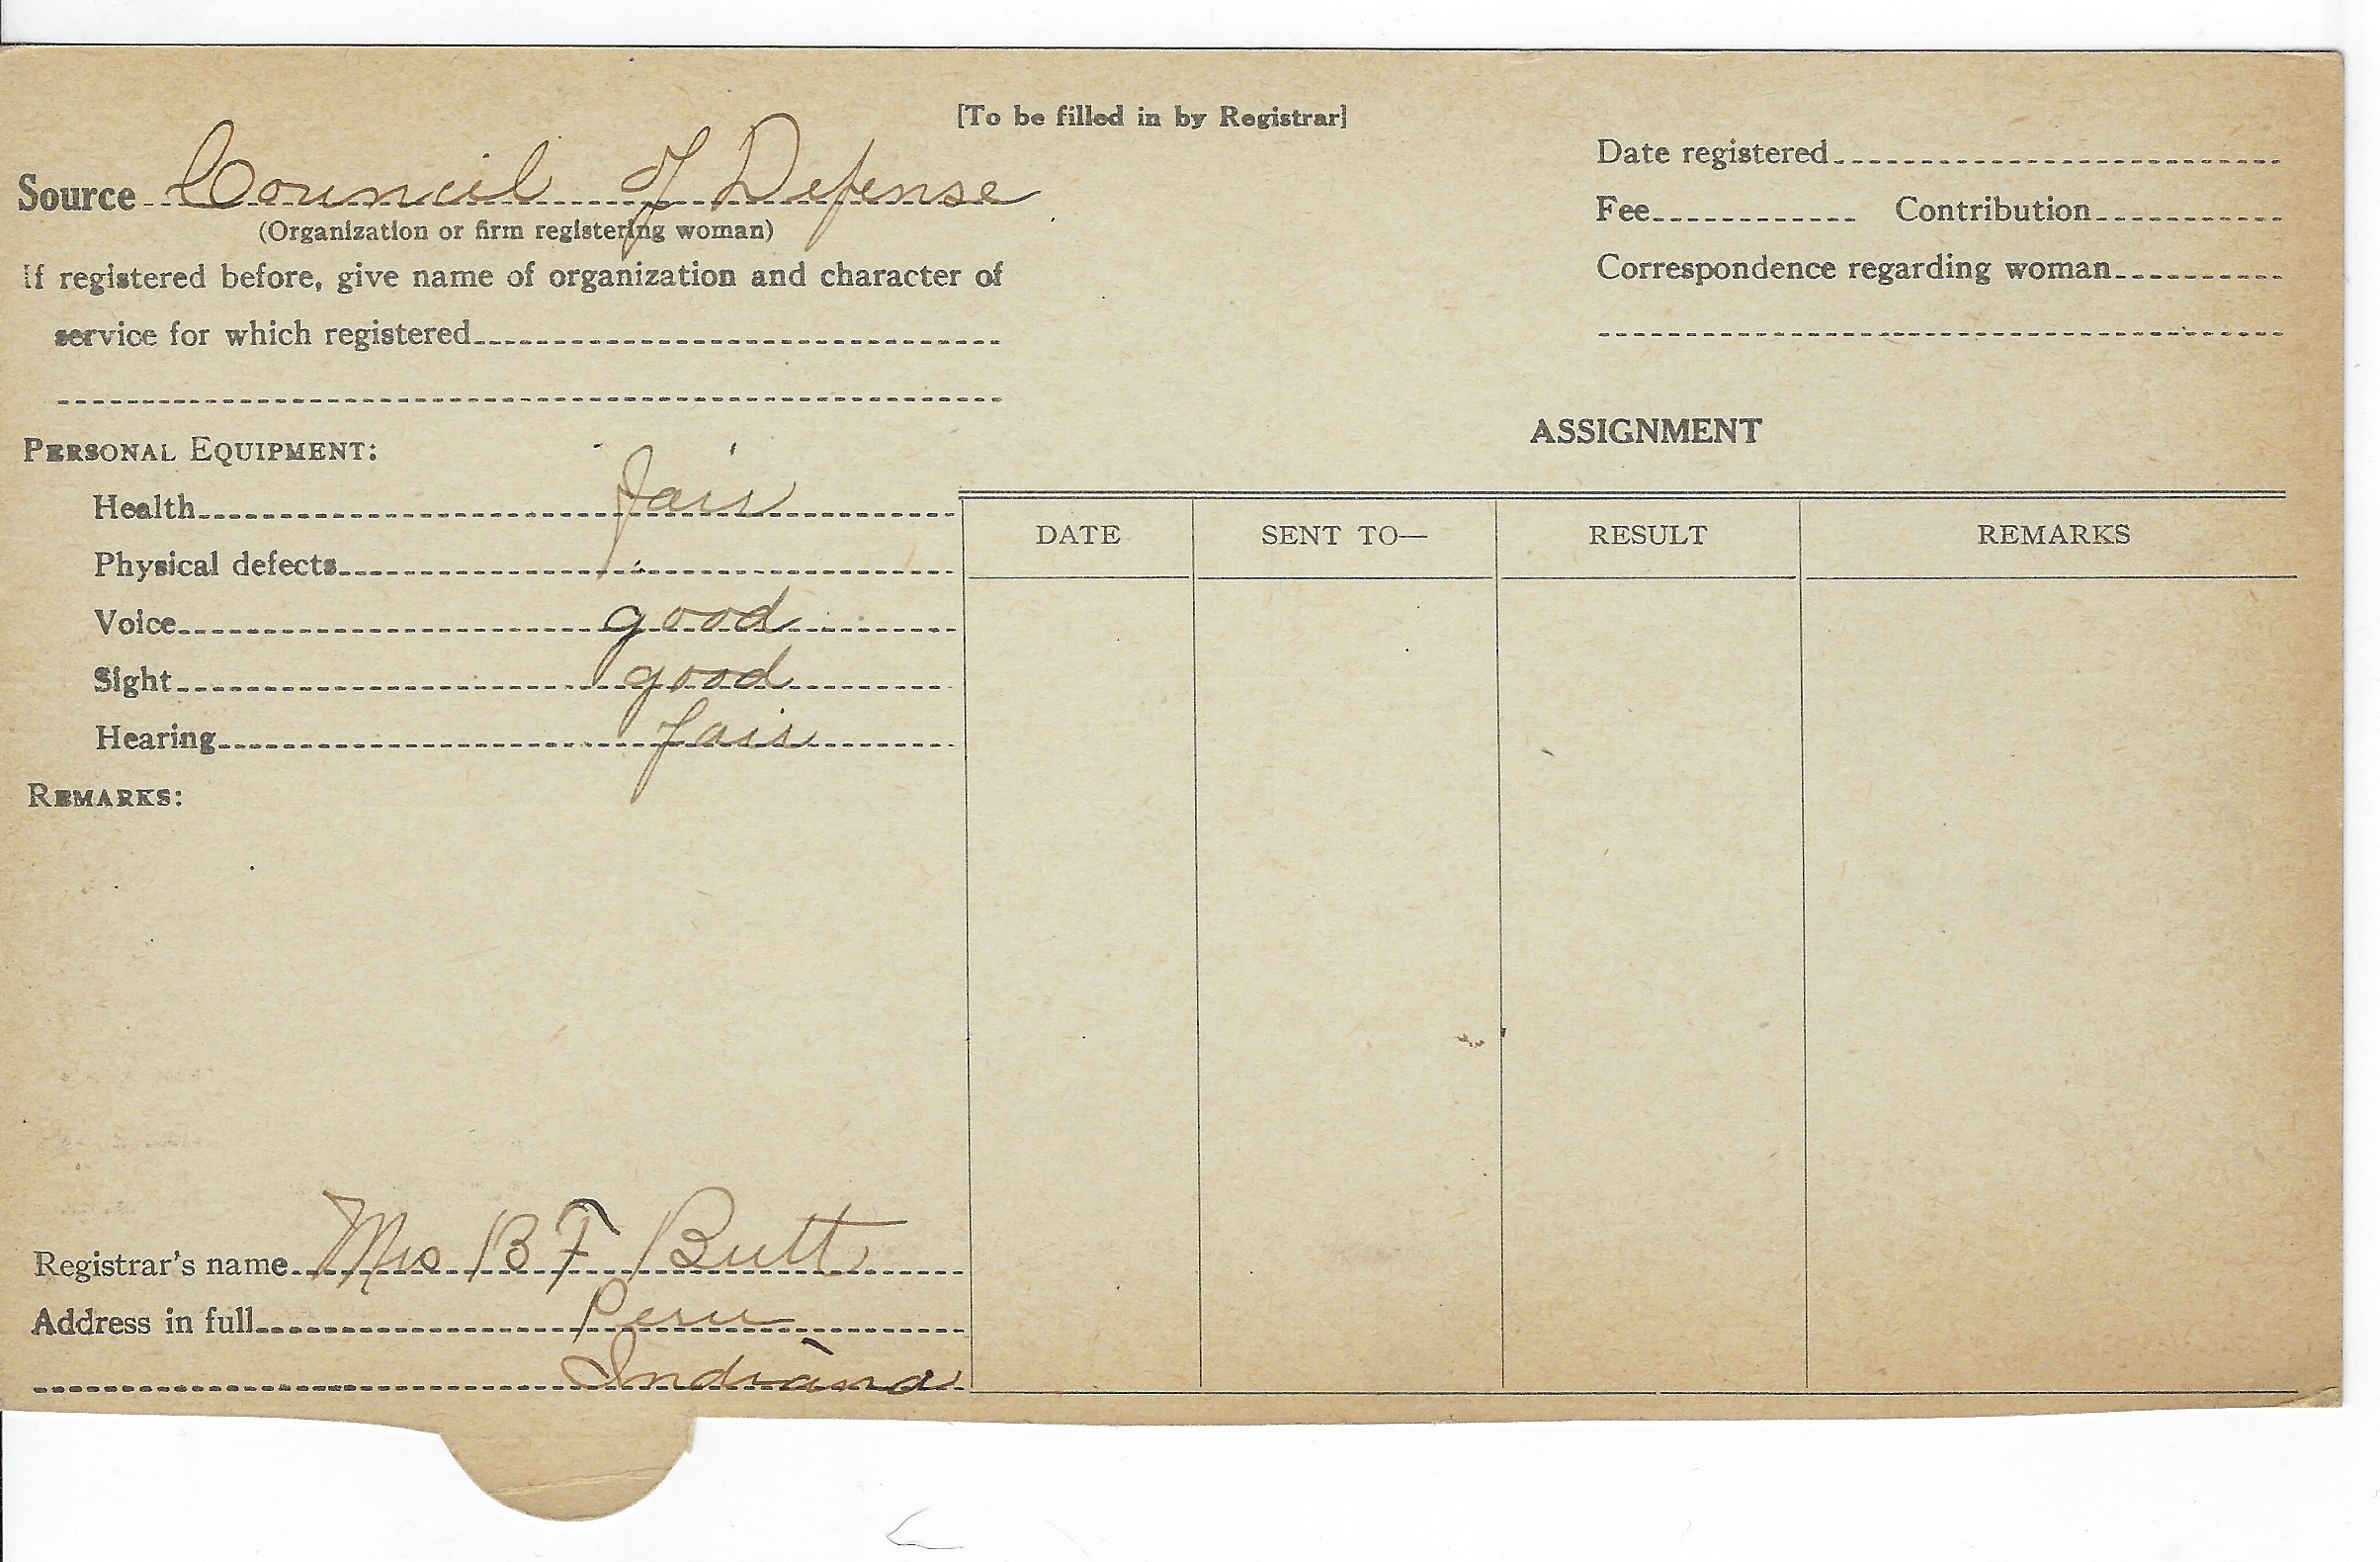 [To be filled in by Registrar]
Source Council of Defense
(Organization or firm registering woman)
If registered before, give name of organization and character of
service for which registered
Date registered
Fee Contribution
Correspondence regarding woman
PERSONAL EQUIPMENT:
Health fair
Physical defects
Voice good
Sight good
Hearing fair
REMARKS:
ASSIGNMENT
DATE SENT TO— RESULT REMARKS
Registrar's name Mrs B F Butt
Address in full Peru
Indiana